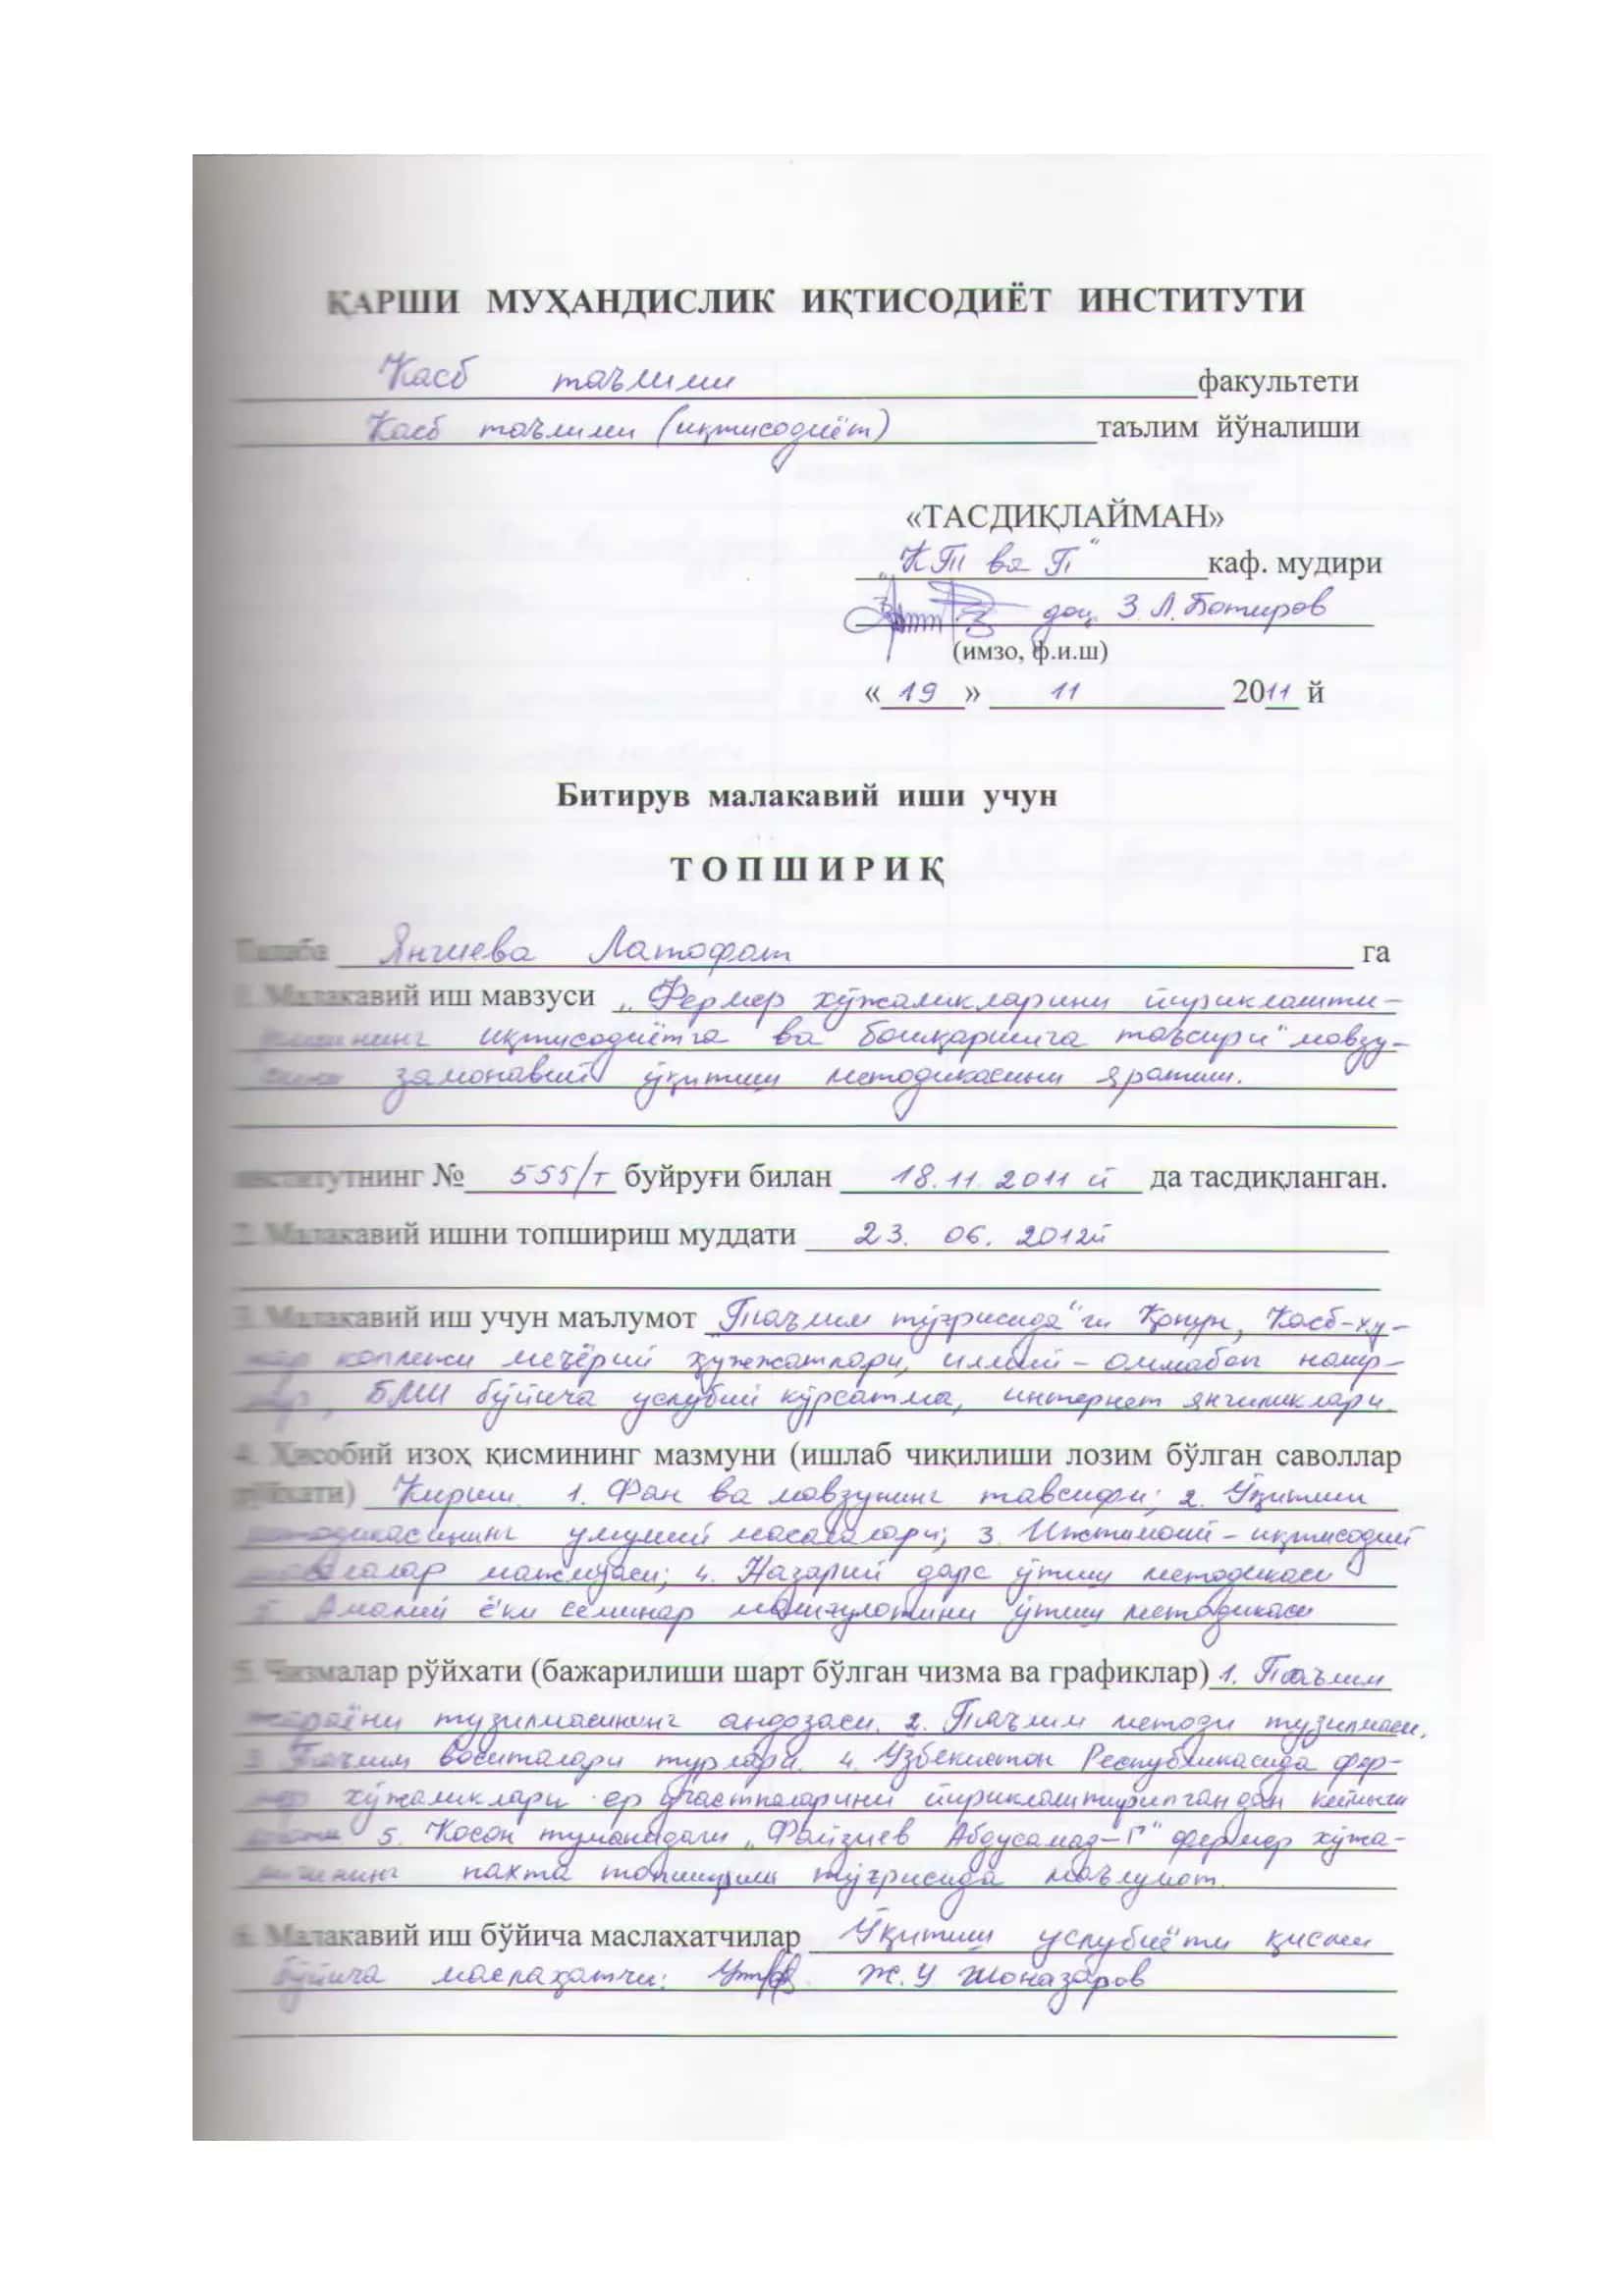 ҚАРШИ МУҲАНДИСЛИК ИҚТИСОДИЁТ ИНСТИТУТИ
Касб таълими факультети
Касб таълими (иқтисодиёт) таълим йўналиши
«ТАСДИҚЛАЙМАН»
„КТ ва П“ каф. мудири
доц. З.Л.Ботиров
(имзо, ф.и.ш)
«19» 11 2011 й
Битирув малакавий иши учун
ТОПШИРИҚ
Талаба Янгиева Латофат га
1. Малакавий иш мавзуси „Фермер хўжаликларини йириклашти-
ришнинг иқтисодиётга ва бошқаришга таъсири“ мавзу-
замонавий ўқитиш методикасини яратиш.
институтнинг № 555/т буйруғи билан 18.11.2011 й да тасдиқланган.
2. Малакавий ишни топшириш муддати 23. 06. 2012й
3. Малакавий иш учун маълумот „Таълим тўғрисида“ги Қонун, Касб-ҳу-
нар коллежи меъёрий ҳужжатлари, илмий-оммабоп нашр-
лар, БМИ бўйича услубий кўрсатма, интернет янгиликлари.
4. Ҳисобий изоҳ қисмининг мазмуни (ишлаб чиқилиши лозим бўлган саволлар
рўйхати) Кириш. 1. Фан ва мавзунинг тавсифи; 2. Ўқитиш
методикасининг умумий масалалари; 3. Ижтимоий-иқтисодий
масалалар мажмуаси; 4. Назарий дарс ўтиш методикаси
5. Амалий ёки семинар машғулотини ўтиш методикаси
5. Чизмалар рўйхати (бажарилиши шарт бўлган чизма ва графиклар) 1. Таълим
жараёни тузилмасининг андозаси. 2. Таълим методи тузилмаси.
3. Таълим воситалари турлари. 4. Ўзбекистон Республикасида фер-
мер хўжаликлари ер участкаларини йириклаштирилгандан кейинги
ҳолати 5. Косон туманидаги „Файзиев Абдусамад-Г“ фермер хўжа-
лигининг пахта топшириш тўғрисида маълумот.
6. Малакавий иш бўйича маслахатчилар Ўқитиш услубиёти қисми
бўйича маслаҳатчи: Ж.У Жоназаров